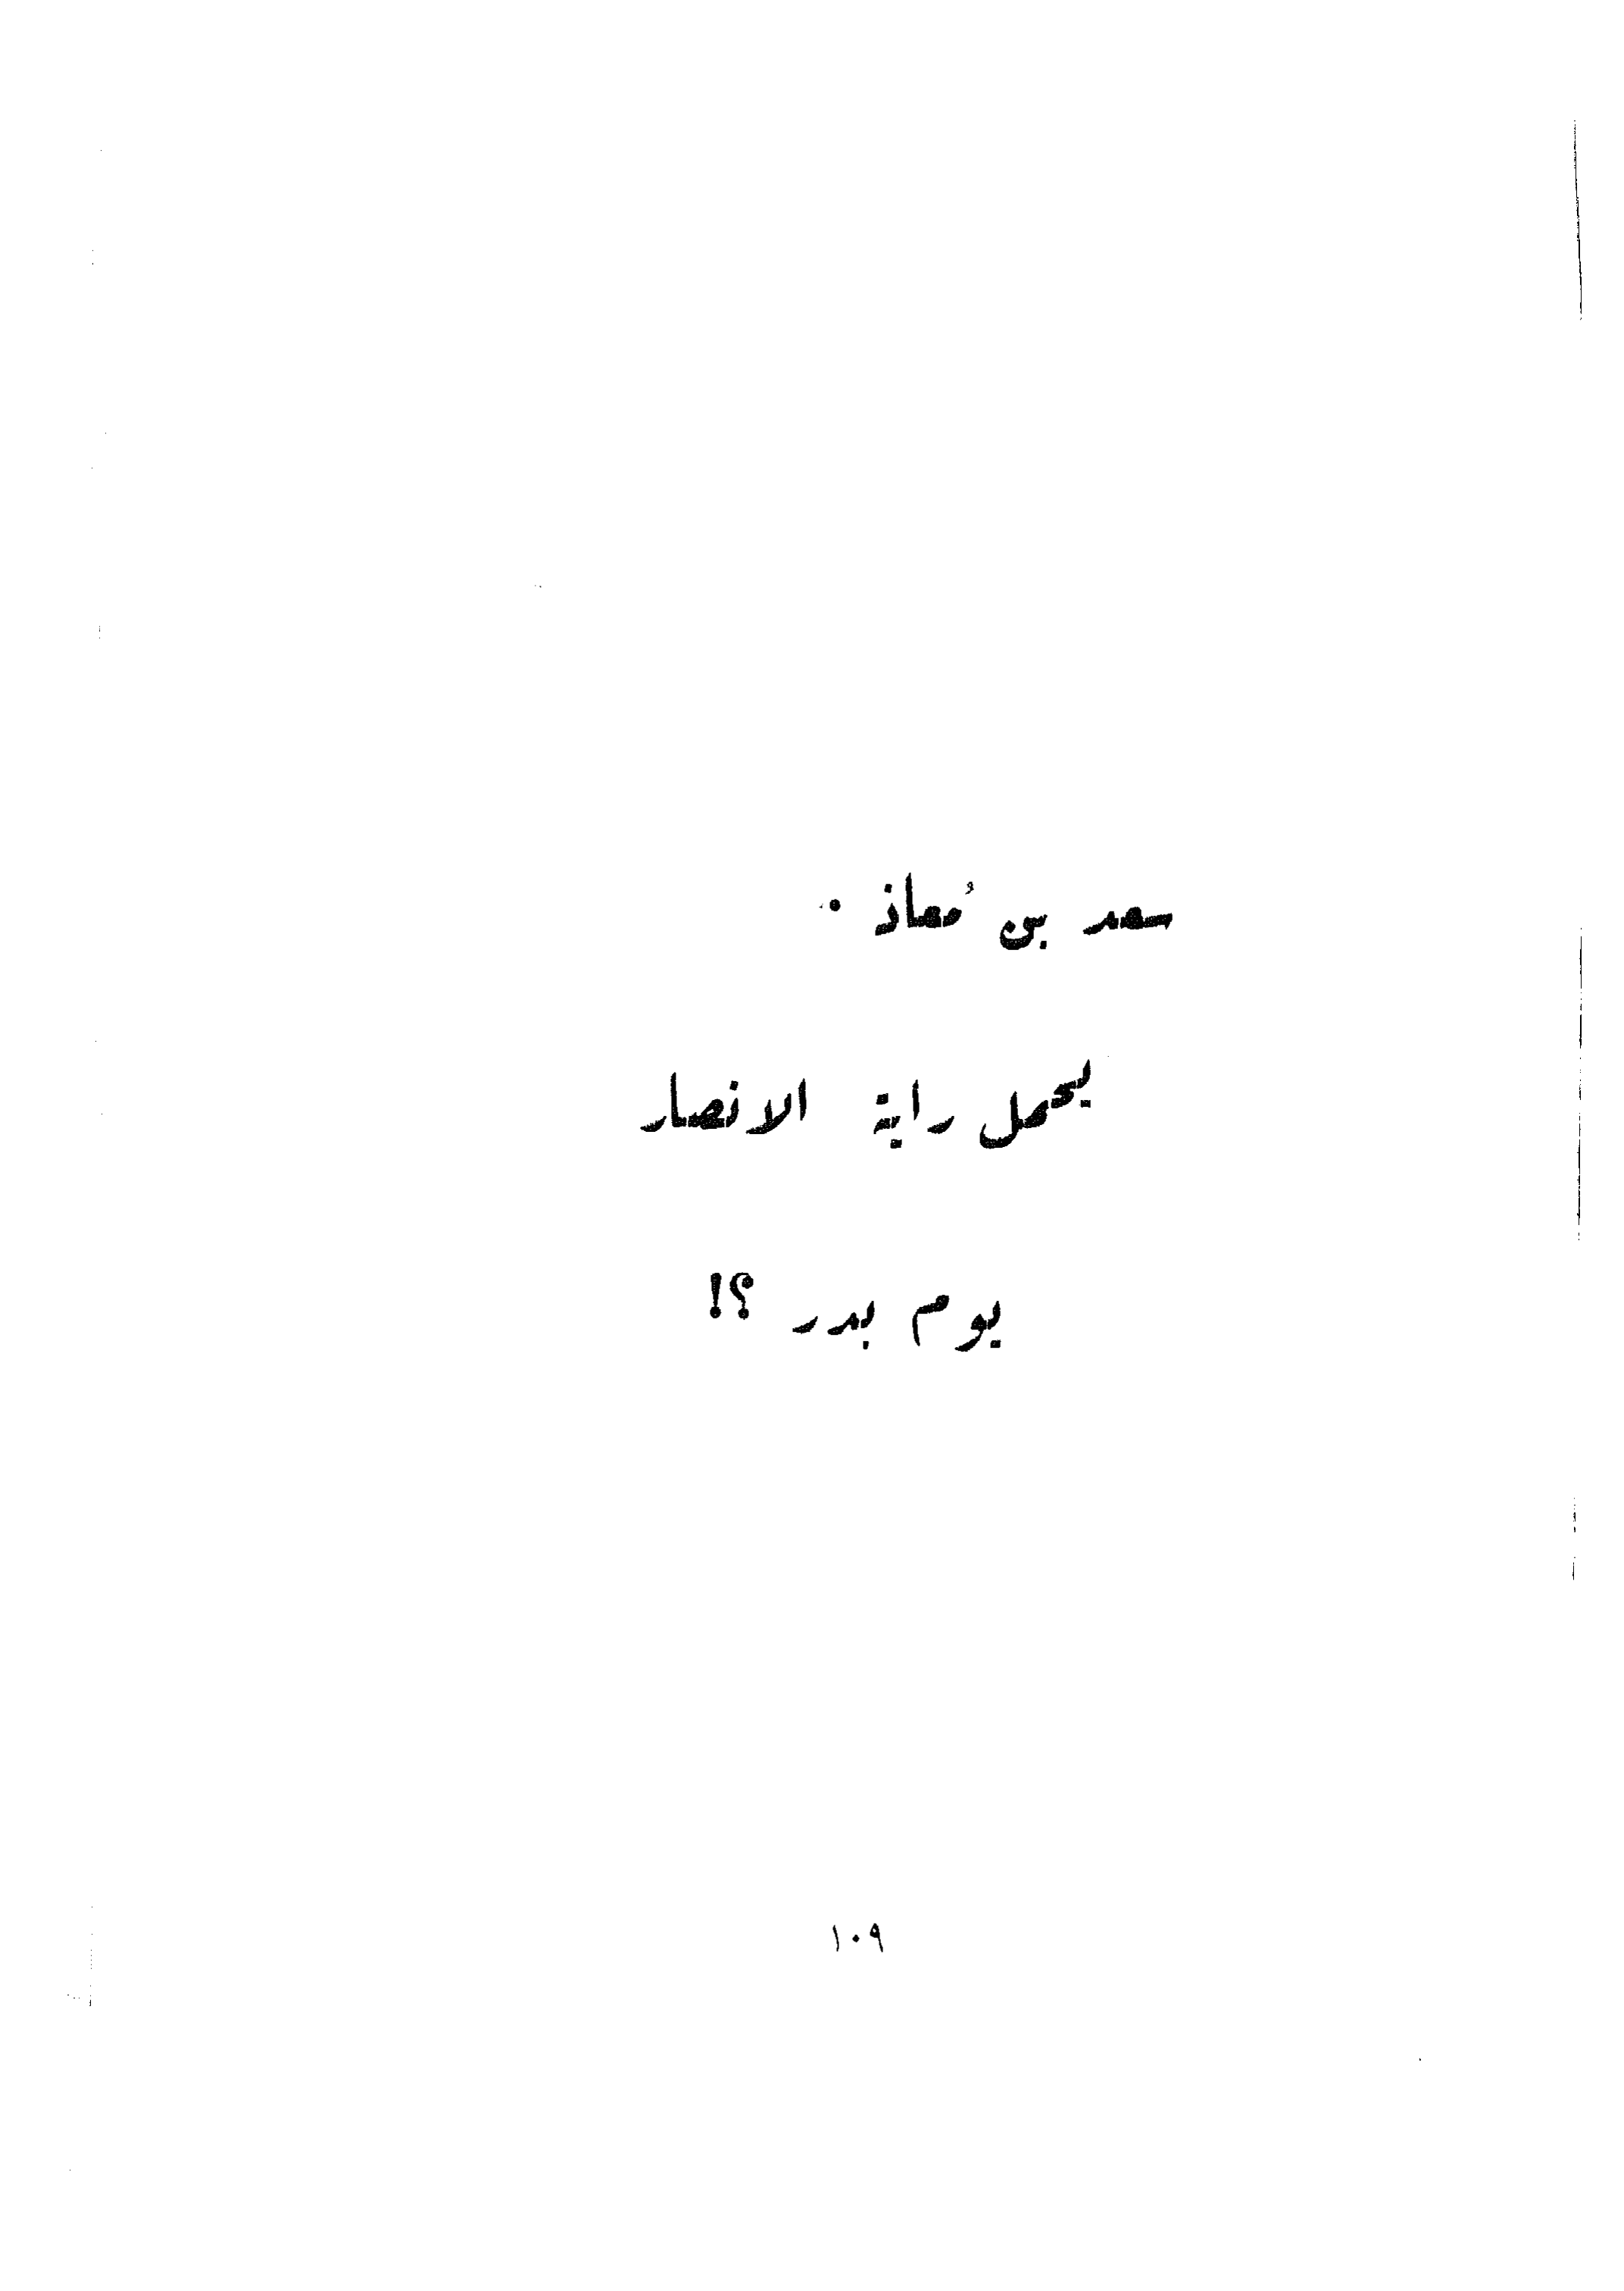 سعد بن مُعاذ .
يحمل راية الانصار
يوم بدر ؟!
١٠٩